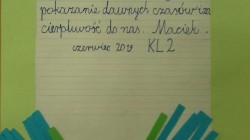 pokazanie dawnych czasów i za
cierpliwość do nas. Maciek.
czerwiec 2019 KL 2